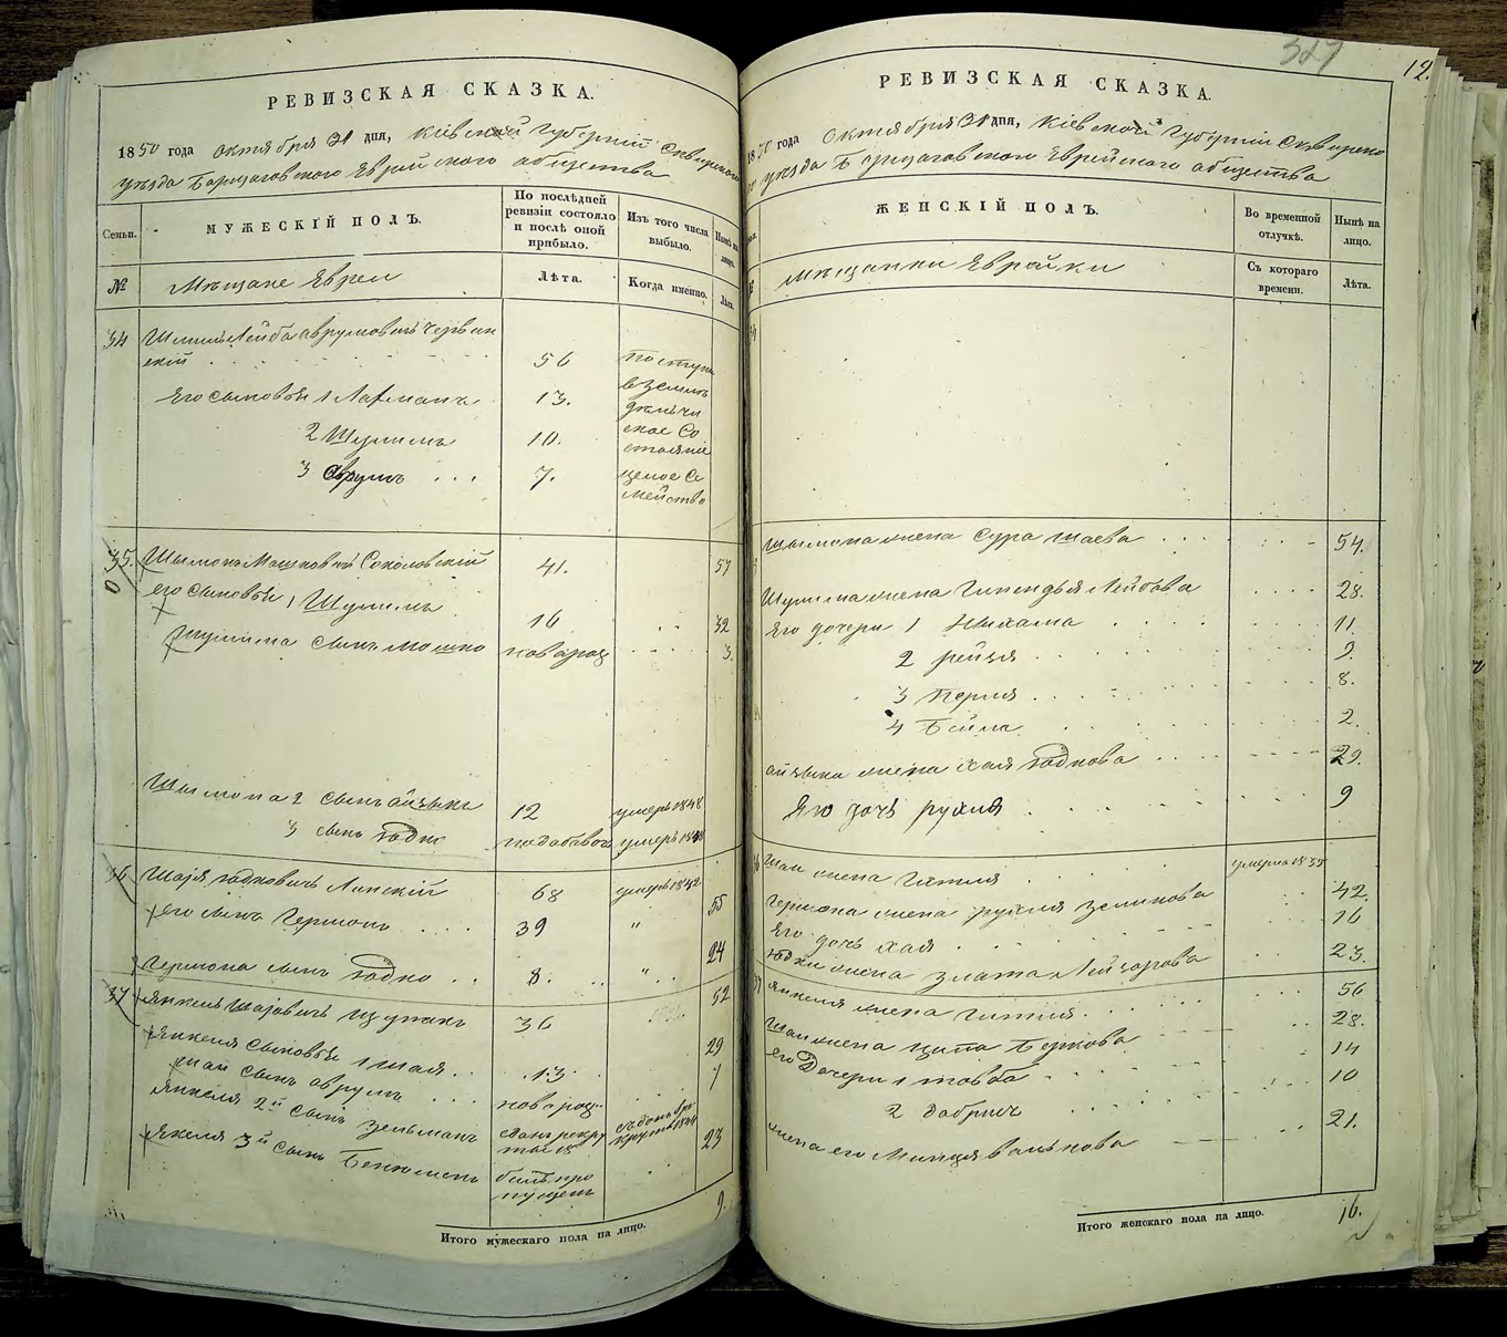 РЕВИЗСКАЯ СКАЗКА.
1850 года октября 31 дня, Кіевской Губерніи Сквирскаго
уезда Борщаговскаго Еврейскаго общества
Семьи.
МУЖЕСКІЙ ПОЛЪ.
По послѣдней ревизіи состояло и послѣ оной прибыло.
Изъ того числа выбыло.
Нынѣ на лицо.
№
Мещане Евреи
Лѣта.
Когда именно.
Лѣта.
34
Лейба Аврумовичъ Червин
скій
56
поступи
Его сыновья 1
13.
в земле
дельче
2 Шулимъ
10.
ское со
стояніе
3 Аврумъ
7.
целое се
мейство
35.
Шымонъ Мошковичъ Соколовскій
41.
57
его сыновья 1 Шулимъ
16
32
Шулима сынъ Мошко
новорож
3.
Шымона 2 сынъ Айзыкъ
12
умеръ 1848
3 сынъ Юдко
умеръ 1848
36
Шая Юдковичъ Липскій
68
умеръ 1842
его сынъ Гершонъ
39
"
55
Гершона сынъ Юдко
8.
"
24
37
Янкель Шаевичъ Щупакъ
36
52
Янкеля сыновья 1 Шая
13.
29
Шаи сынъ Аврумъ
новорож
1
Янкеля 2й сынъ Зельманъ
Янкеля 3й сынъ
былъ про
пущен
23
Итого мужескаго пола на лицо.
9.
327
12.
РЕВИЗСКАЯ СКАЗКА.
1850 года Октября 31 дня, Кіевской Губерніи Сквирска
го уезда Борщаговскаго Еврейскаго общества
ЖЕНСКІЙ ПОЛЪ.
Во временной отлучкѣ.
Нынѣ на лицо.
Мещанки Еврейки
Съ котораго времени.
Лѣта.
Шымона жена Сура Шаева
54.
Шулима жена Лейбова
28.
Его дочери 1 Ныхама
11.
2 Рейзя
9.
3 Перля
8.
4 Бейла
2.
Айзыка жена Хая Юдкова
29.
Его дочь Рухля
9
36
Шаи жена Гитля
умерла
Гершона жена Рухля Зеликова
42.
Его дочь Хая
16
Юдки жена Злата Лейзорова
23.
Янкеля жена Гитля
56
Шаи жена Ципа Беркова
28.
его Дочери 1 Товба
14
2 Добрыш
10
жена его
21.
Итого женскаго пола на лицо.
16.